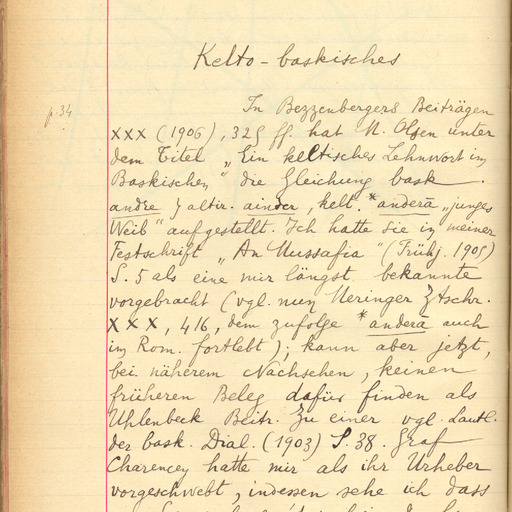 Kelto-baskisches
p. 34
In Bezzenbergers Beiträgen
XXX (1906), 325 ff. hat M. Olsen unter
dem Titel „Ein keltisches Lehnwort im
Baskischen" die Gleichung bask.
andre } altir. ainder, kelt. *anderā „junges
Weib" aufgestellt. Ich hatte sie in meiner
Festschrift „An Mussafia" (Frühj. 1905)
S. 5 als eine mir längst bekannte
vorgebracht (vgl. nun Meringer Ztschr.
XXX, 416, dem zufolge *anderā auch
im Rom. fortlebt); kann aber jetzt,
bei näherem Nachsehen, keinen
früheren Beleg dafür finden als
Uhlenbeck Beitr. zu einer vgl. Lautl.
der bask. Dial. (1903) S. 38. Graf
Charencey hatte mir als ihr Urheber
vorgeschwebt, indessen sehe ich dass